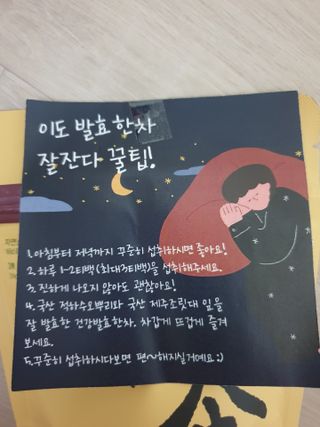 이도 발효 한차
잘잔다 꿀팁!
1. 아침부터 저녁까지 꾸준히 섭취하시면 좋아요!
2. 하루 1-2티백 (최대3티백)을 섭취해주세요.
3. 진하게 나오지 않아도 괜찮아요!
4. 국산 적하수오뿌리와 국산 제주조릿대 잎을
잘 발효한 건강발효한차. 차갑게 뜨겁게 즐겨
보세요.
5. 꾸준히 섭취하시다보면 편~해지실거예요 :)